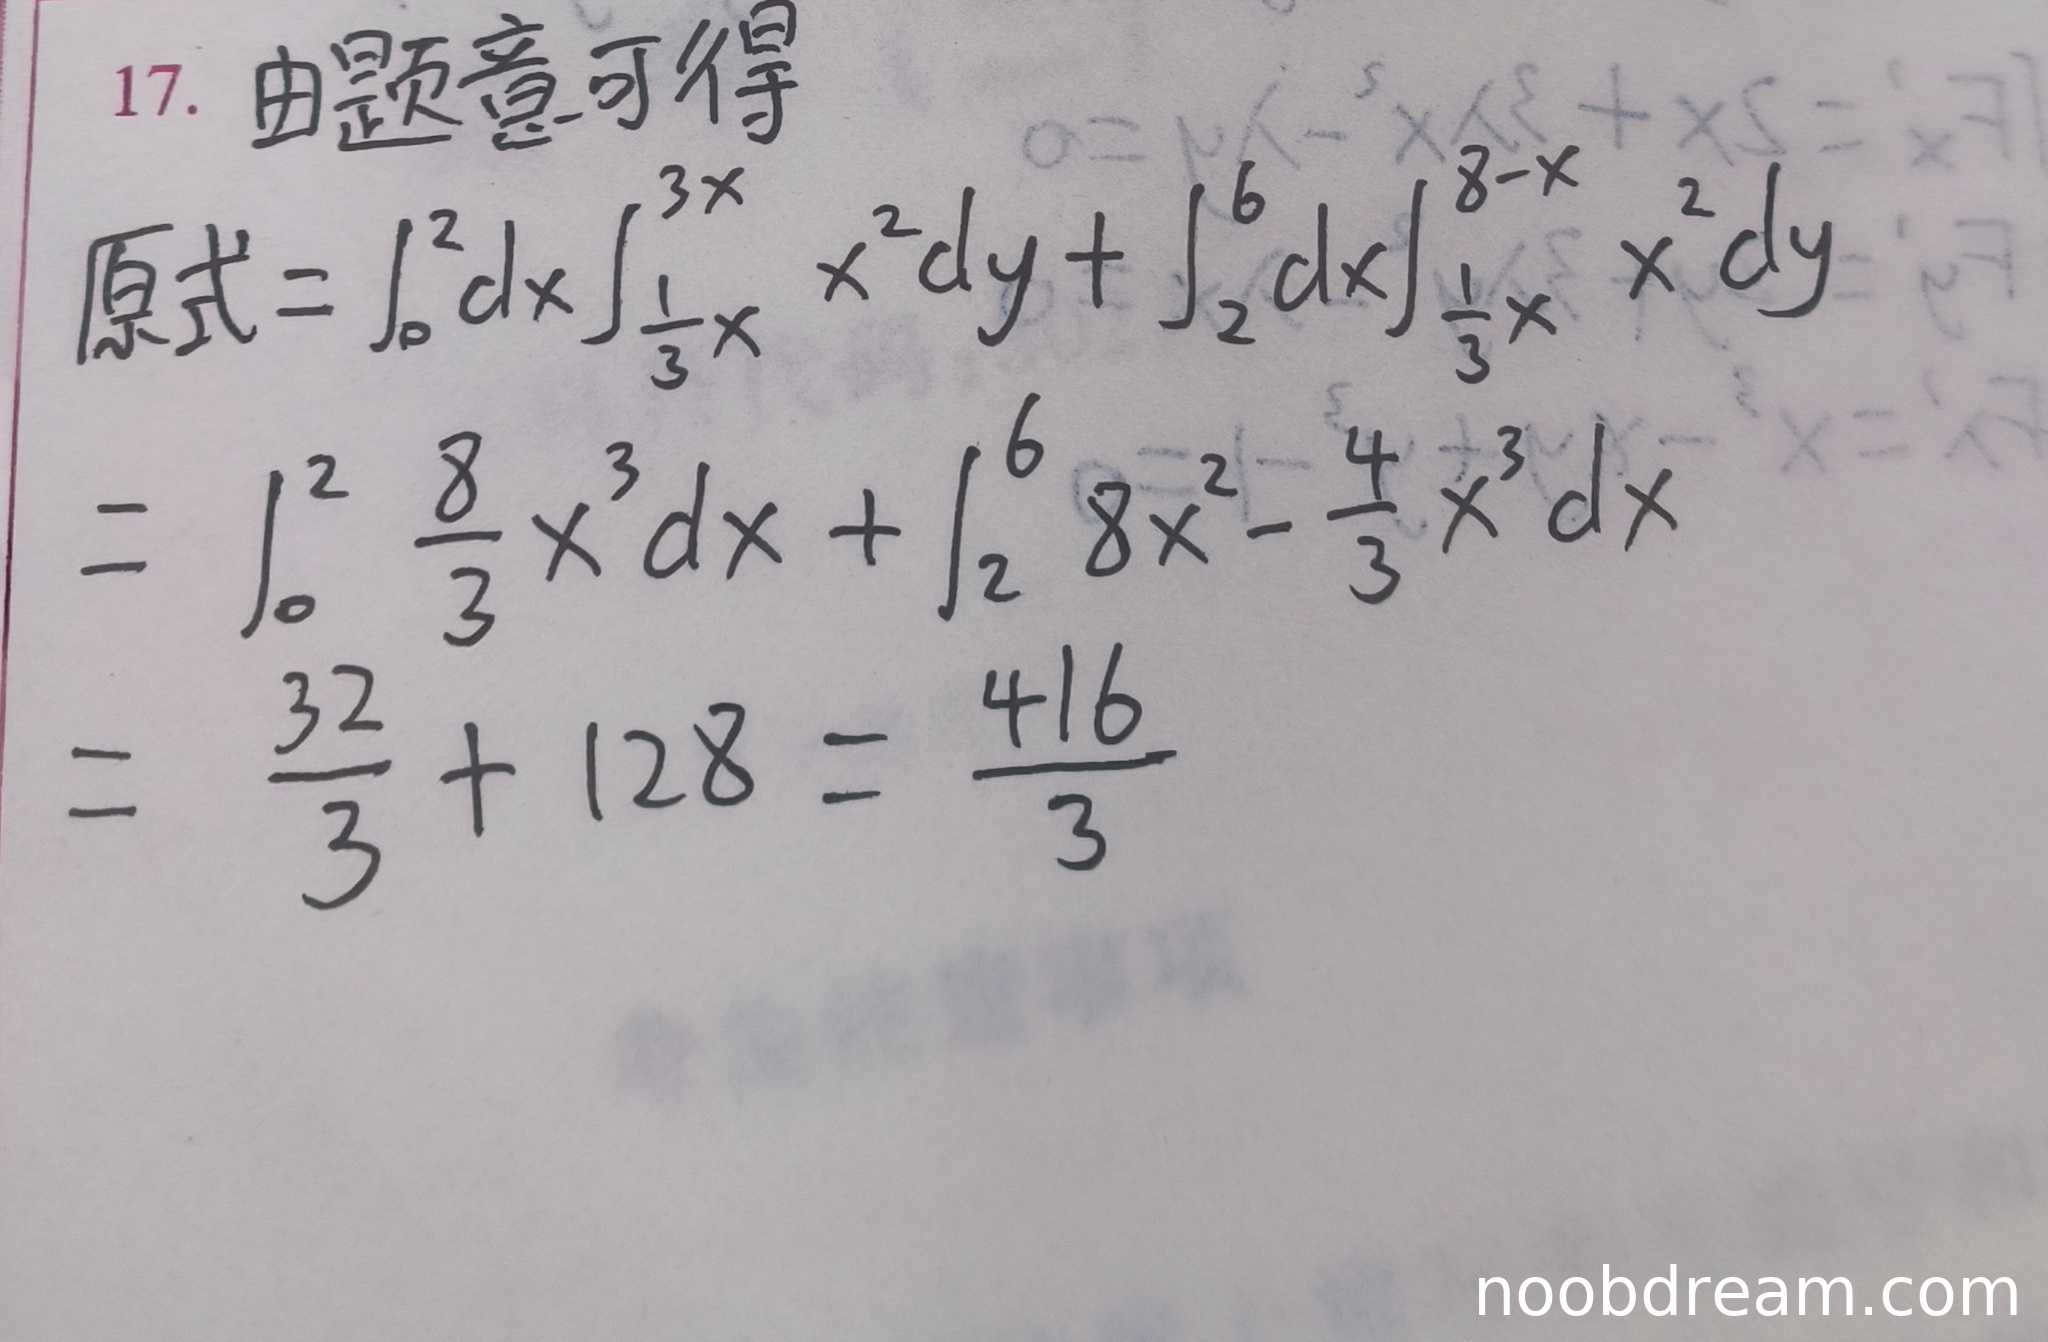 17. 由题意可得
原式 = ∫₀² dx ∫_{1/3 x}^{3x} x² dy + ∫₂⁶ dx ∫_{1/3 x}^{8-x} x² dy
= ∫₀² 8/3 x³ dx + ∫₂⁶ 8x² - 4/3 x³ dx
= 32/3 + 128 = 416/3
noobdream.com